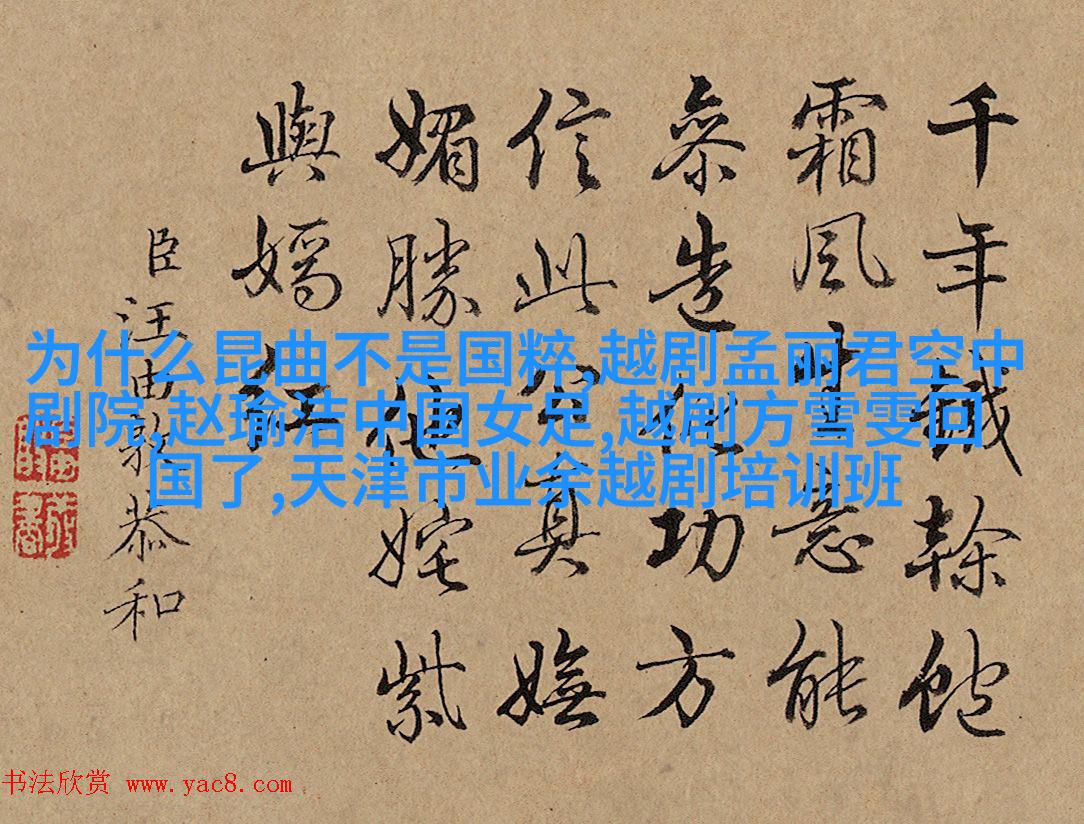 千年鐵榦飽
霜風畫意能
參造化功方
信此真嫵
媚勝他姹紫
與嫣紅
臣汪由敦恭和
为什么昆曲不是国粹,越剧孟丽君空中
剧院,赵瑜洁中国女足,越剧方雪雯回
国了,天津市业余越剧培训班
书法欣赏 www.yac8.com